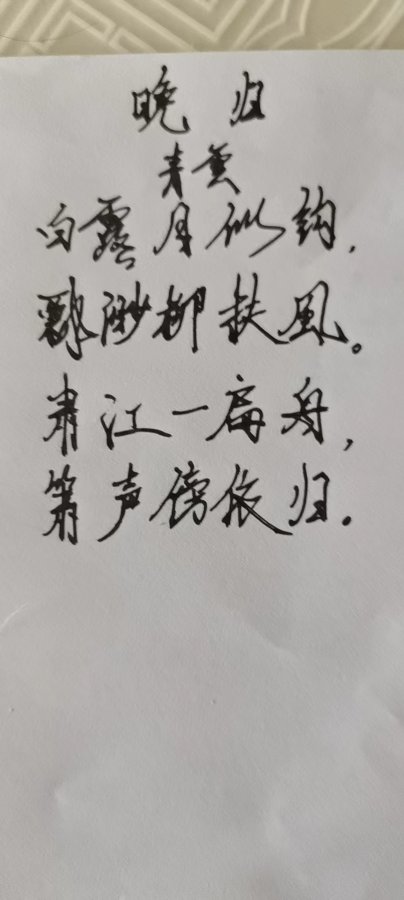 晚归
青云
白露月似钩，
飘渺柳扶風。
青江一扁舟，
箫声傍依归。